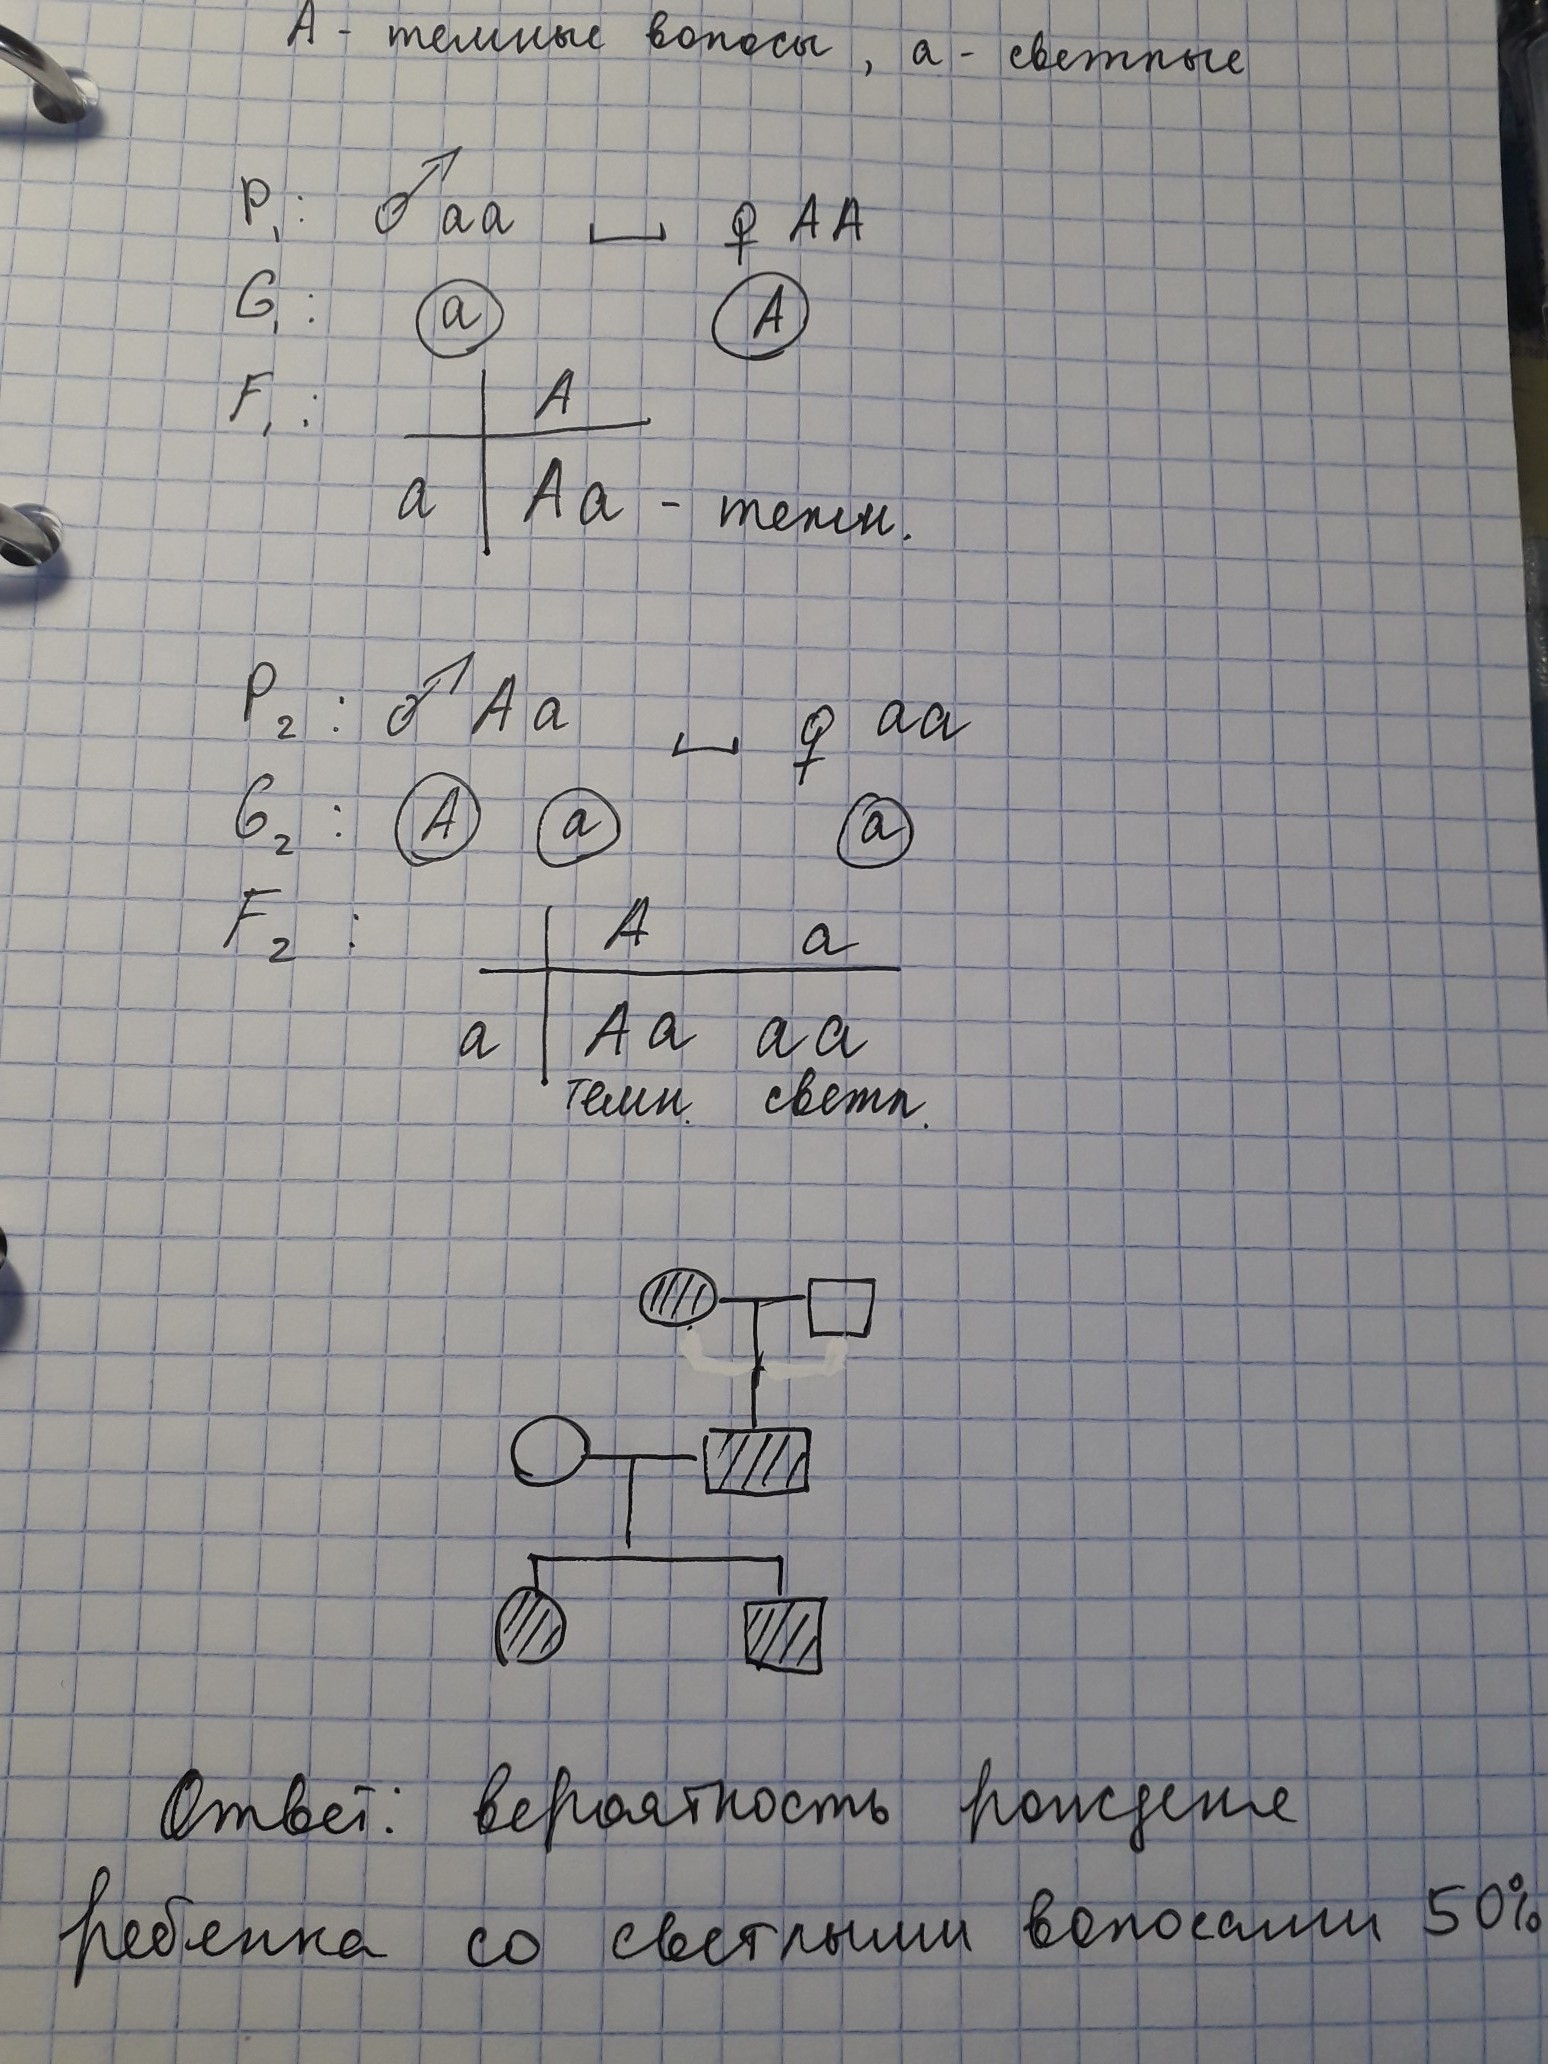 А - темные волосы, а - светлые
P₁: ♂ aa ♀ AA
G₁: a A
F₁: A
a Aa - темн.
P₂: ♂ Aa ♀ aa
G₂: A a a
F₂: A a
a Aa aa
темн. светл.
Ответ: вероятность рождение
ребенка со светлыми волосами 50%